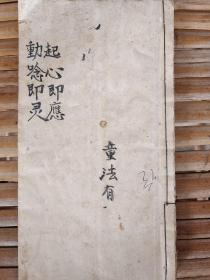 起心即應
動念即灵
童法有